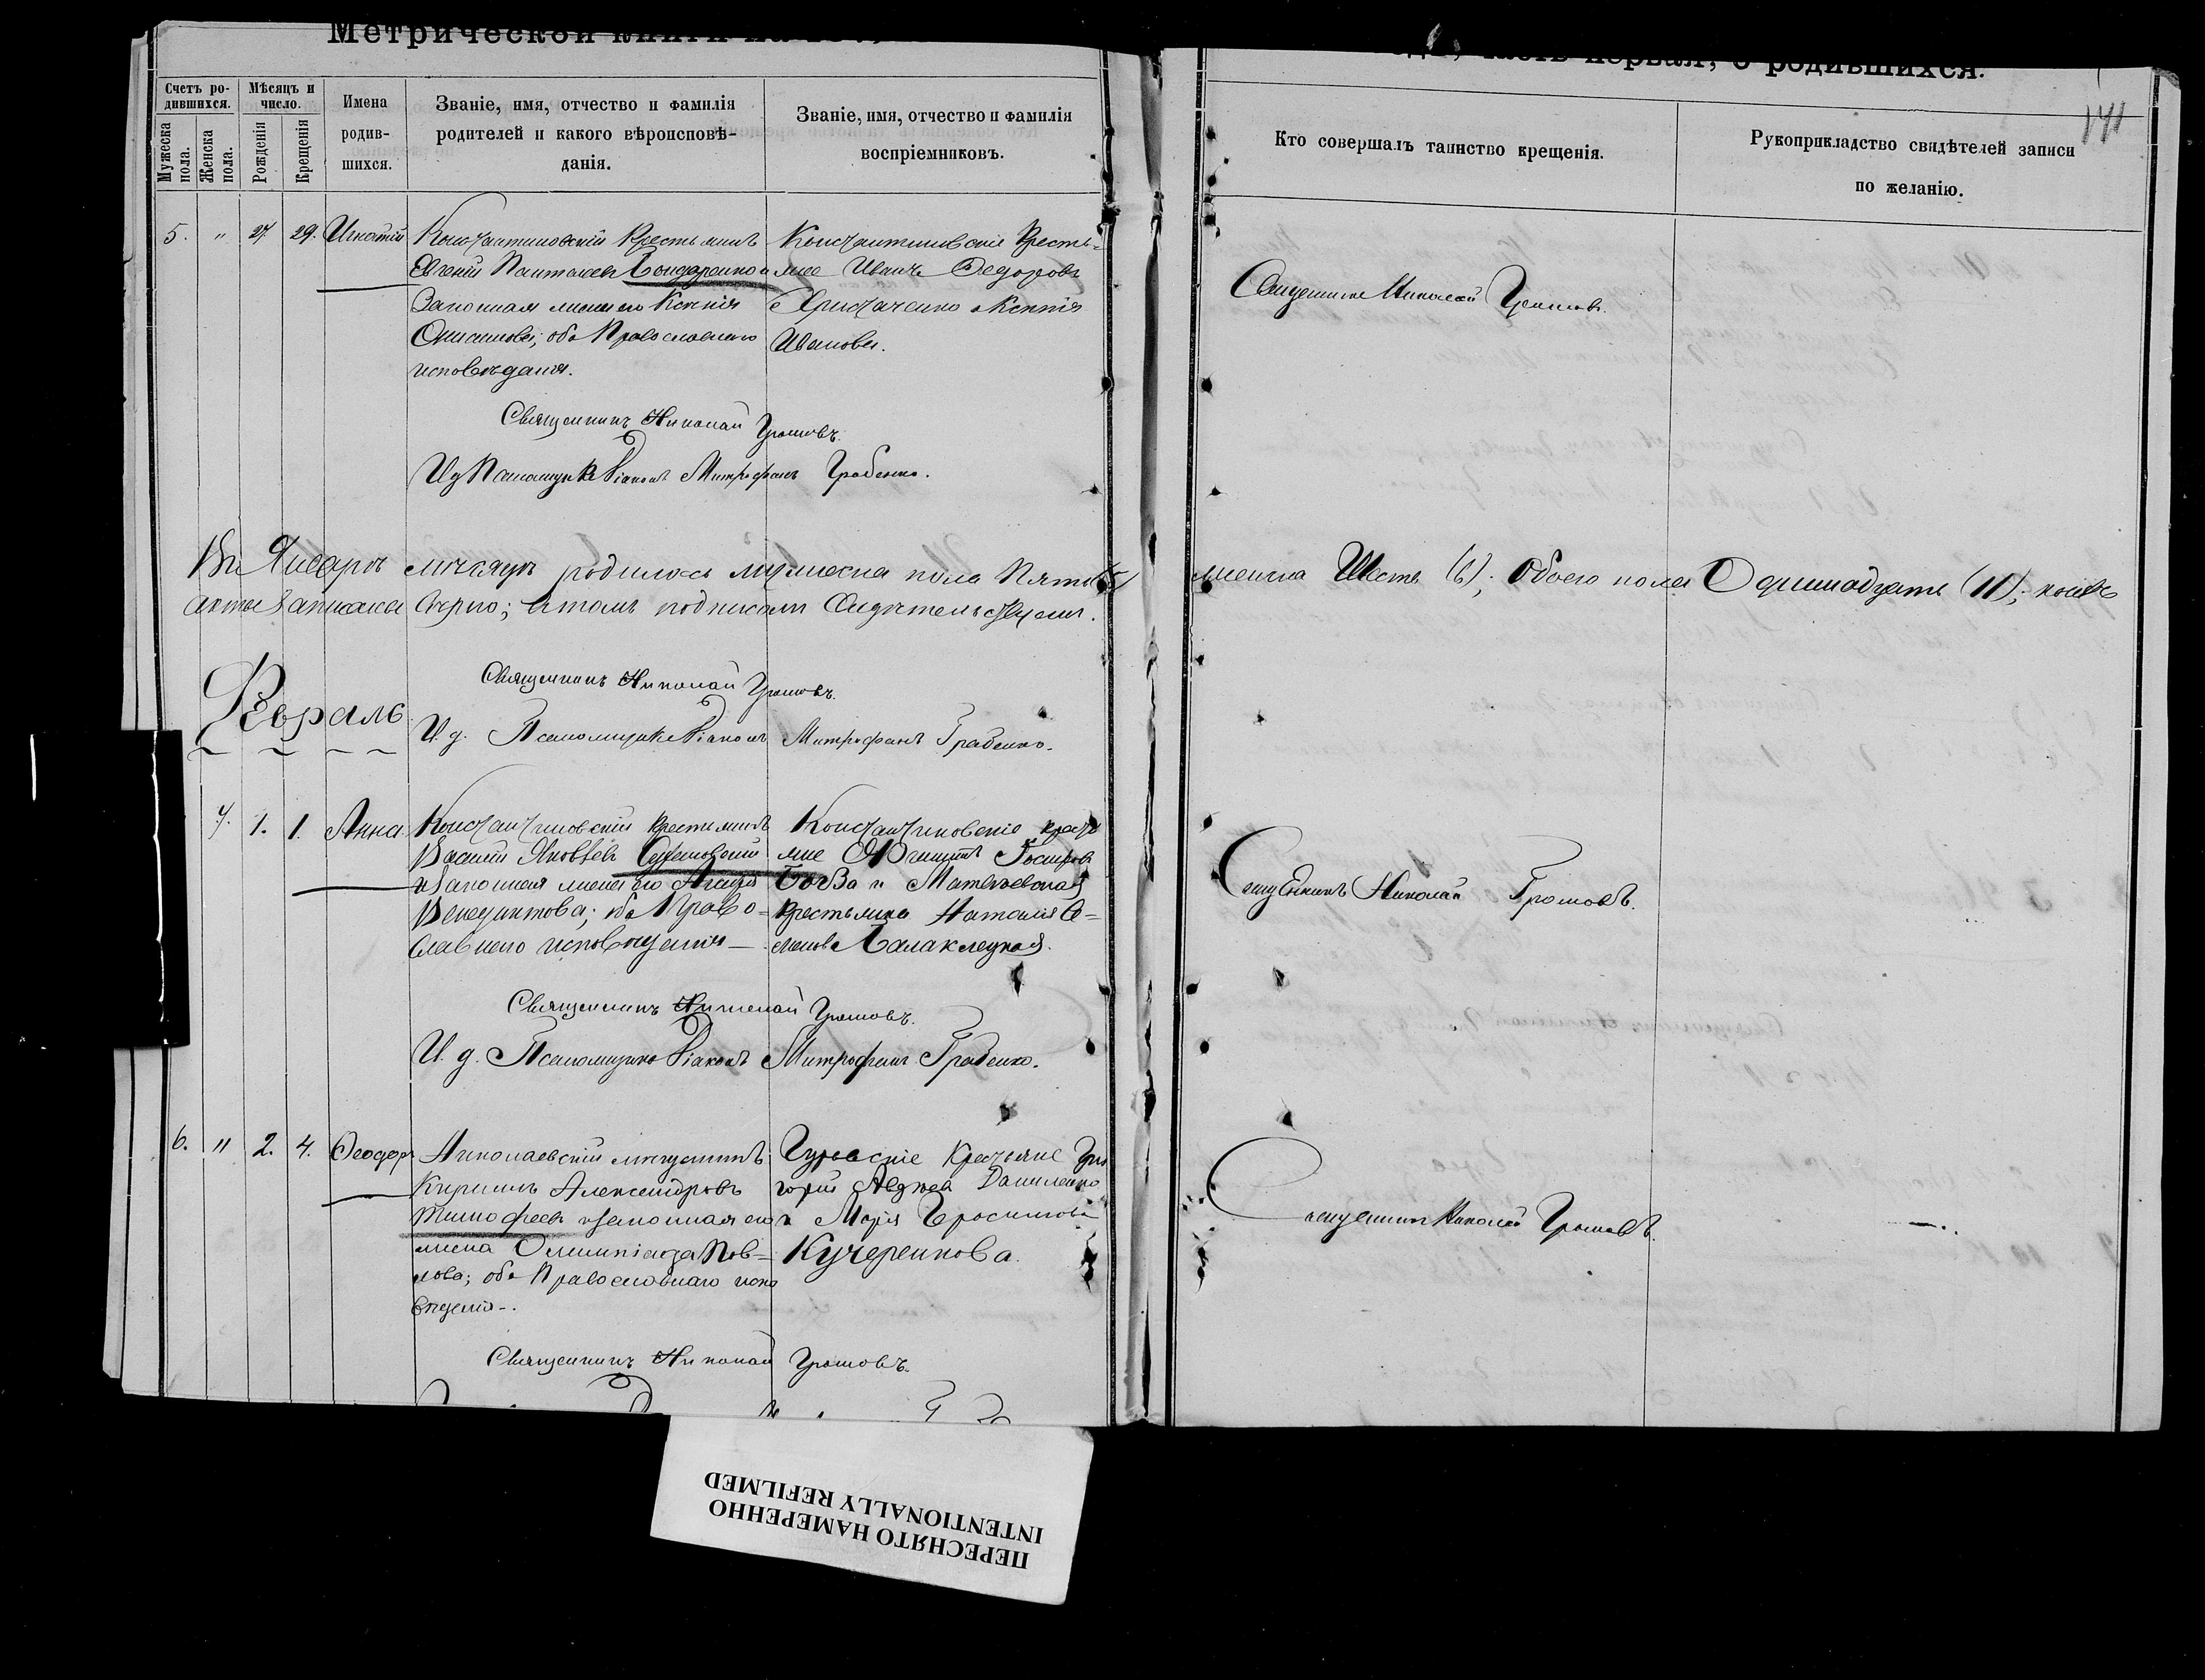 Метрической книги на
часть первая, о родившихся.
141
Счетъ ро-
дившихся.
Мужеска
пола.
Женска
пола.
Мѣсяцъ и
число.
Рожденія
Крещенія
Имена
родив-
шихся.
Званіе, имя, отчество и фамилія
родителей и какого вѣроисповѣ-
данія.
Званіе, имя, отчество и фамилія
воспріемниковъ.
Кто совершалъ таинство крещенія.
Рукоприкладство свидѣтелей записи
по желанію.
5. " 27 29. Игнатій
Константиновскій Крестьянинъ
Евгеній Пантелеев Бондаренко и
Законная жена его Ксенія
оба Православнаго
исповѣданія.
Константиновскіе Кресть=
яне Иванъ Федоровъ
Христаченко и Ксенія
Иванова.
Священникъ Николай Громовъ.
Священникъ Николай Громовъ.
И д Псаломщика Діаконъ Митрофанъ Грабенко.
Въ Январѣ мѣсяцѣ родилось мужеска пола Пять (5) женска Шесть (6); Обоего пола Одиннадцать (11);
акты записаны вѣрно; въ томъ подписом Свидѣтельствуемъ.
Священникъ Николай Громовъ.
Февраль
И. д. Псаломщика Діаконъ Митрофанъ Грабенко.
7. 1. 1. Анна
Константиновскій крестьянинъ
Василій Яковлевъ
и законная жена его
Венедиктова; оба Право=
славнаго исповѣданія —
Константиновскіе крест
яне
и Матвѣевская
крестьянка Наталія Се=
менова Балаклецкая.
Священникъ Николай Громовъ.
Священникъ Николай Громовъ.
И. д. Псаломщика Діаконъ Митрофанъ Грабенко.
6. " 2. 4. Феодоръ
Николаевскій мѣщанинъ
Кириллъ Александровъ
Тимофеевъ и законная его
жена Олимпіада Пав=
лова; оба Православнаго испо
вѣданія -.
Гуровскіе Крестьяне Гри
горій Авдѣев Даниленко
и Марія Герасимова
Кучеренкова.
Священникъ Николай Громовъ.
Священникъ Николай Громовъ.
ПЕРЕСНЯТО НАМЕРЕННО
INTENTIONALLY REFILMED